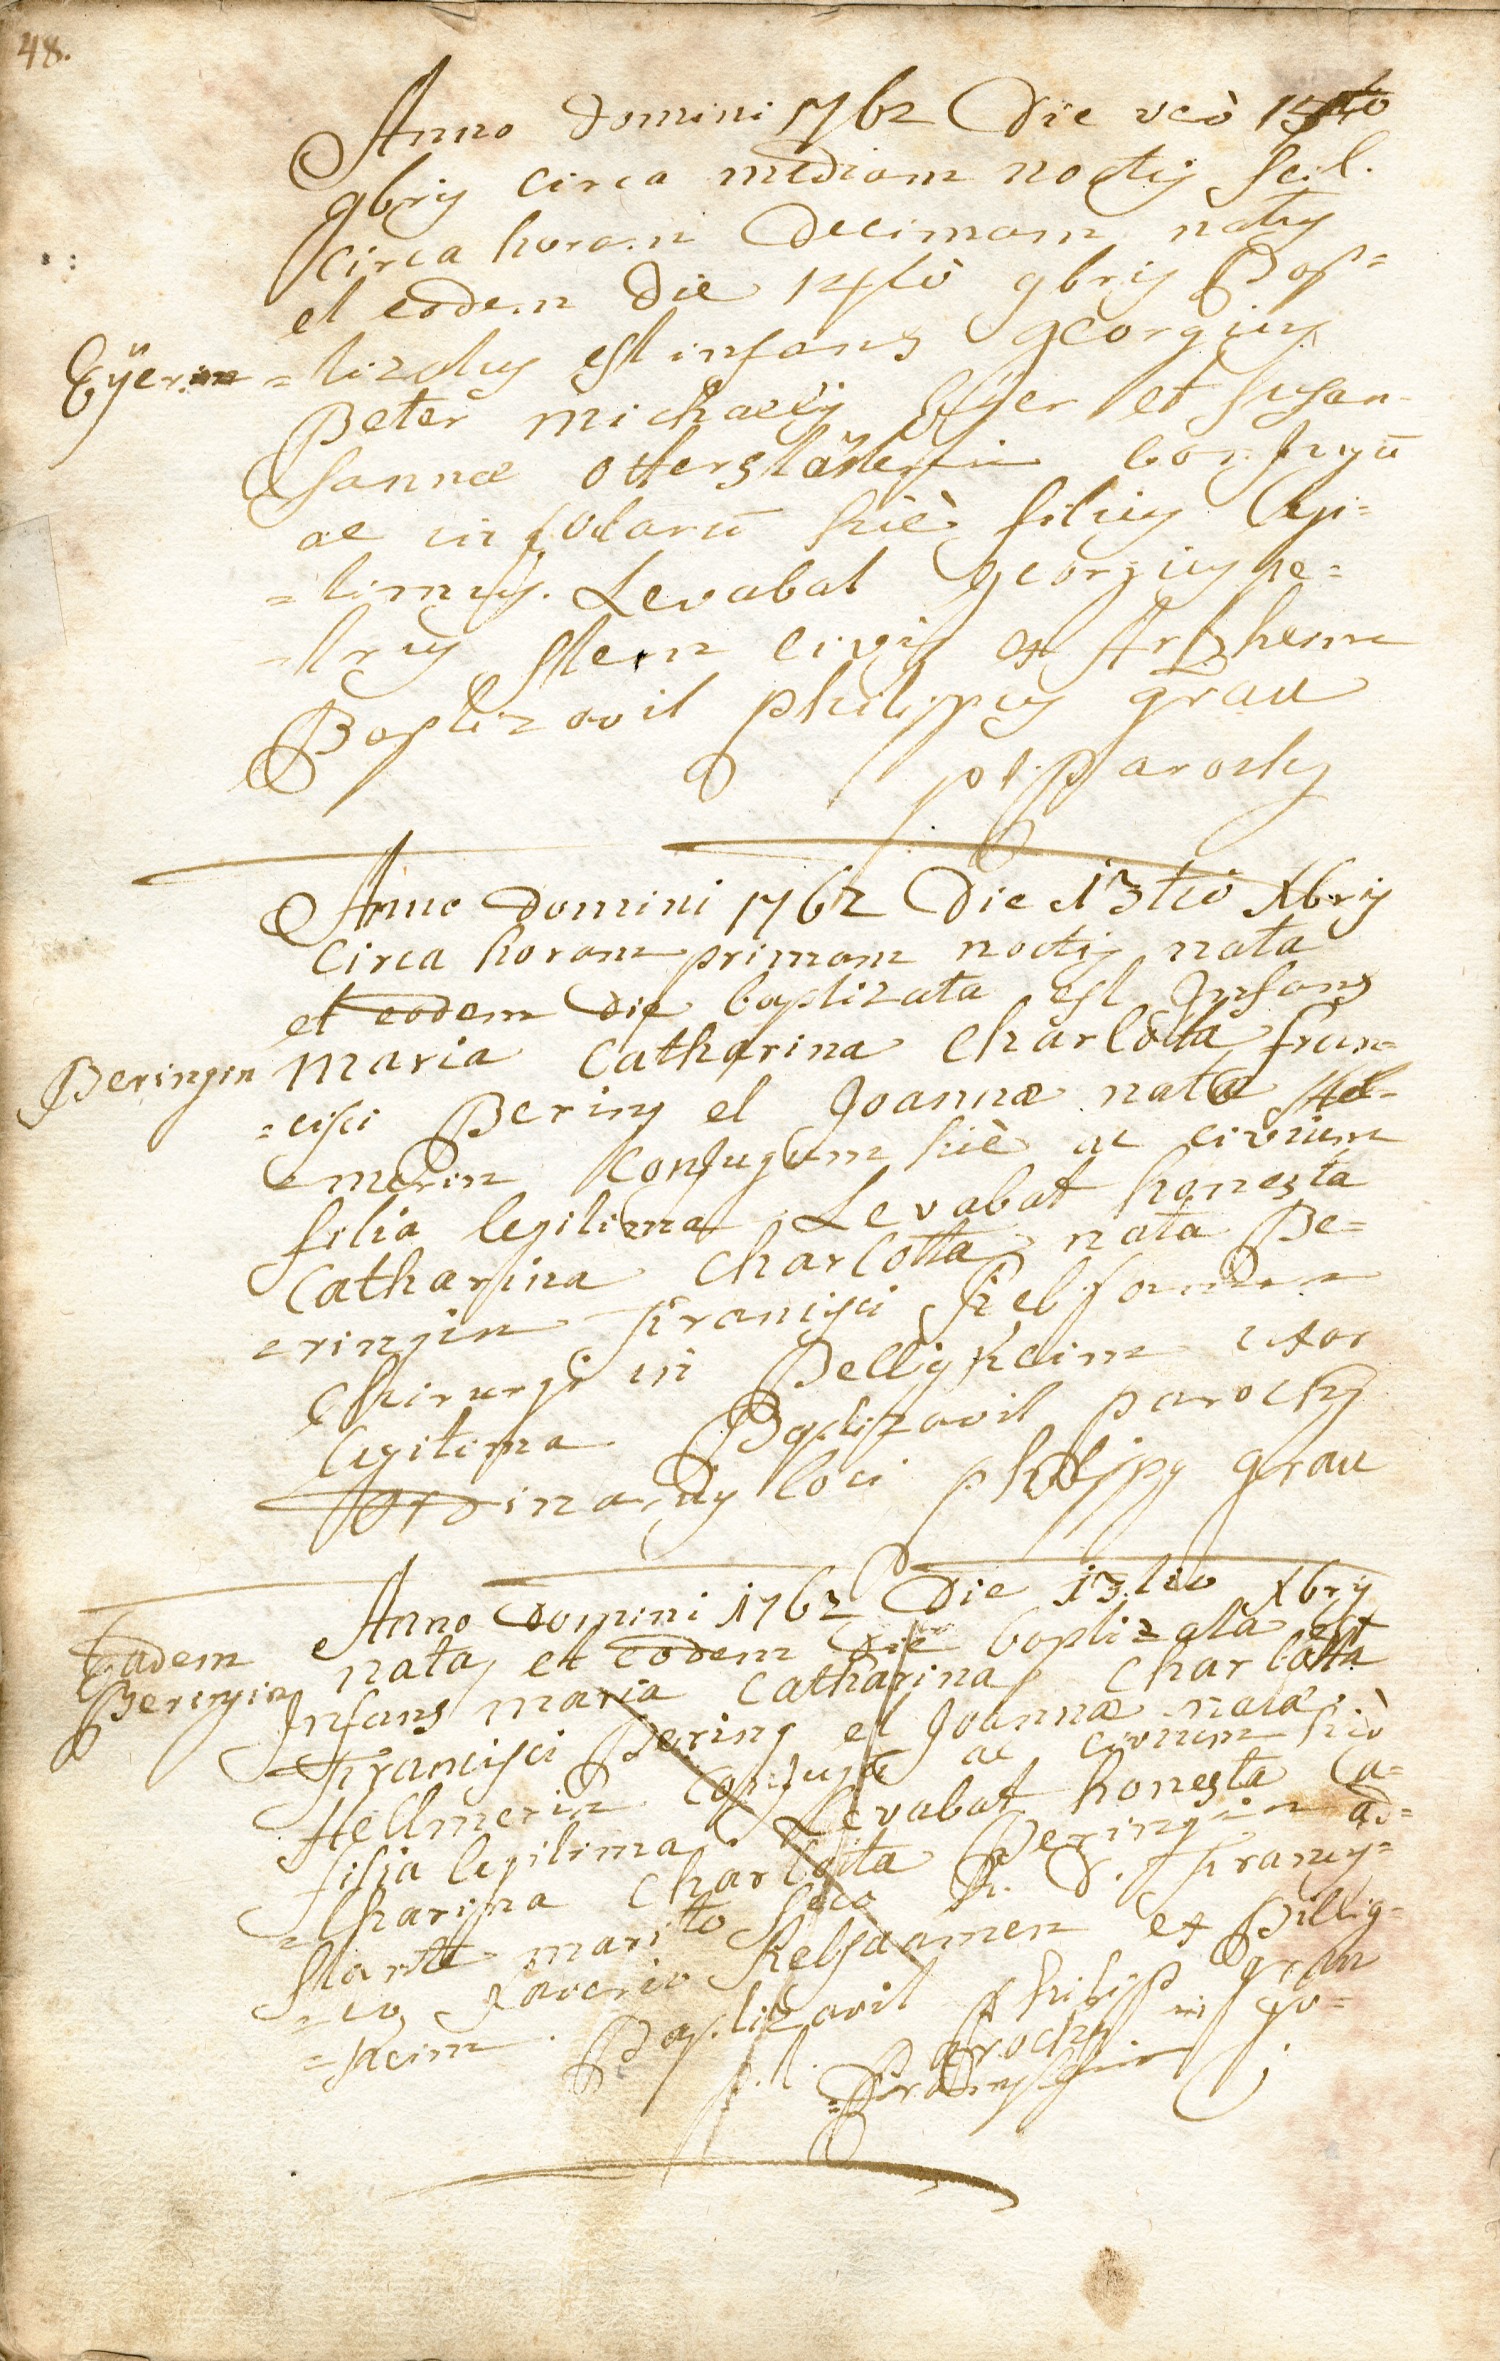 48.
Anno Domini 1762 Die vero
9bris circa mediam noctis scil.
circa horam Decimam natus
et eodem Die 14to 9bris Bap=
Eÿer =tizatus est infans georgius
Peter Michaelis Eÿer et Susan-
sannae conjugū
ac incolarū hiè filius legi=
=timus. Levabat georgius pe=
=trus Stern civis ex Artzheim
Baptizavit philippus grau
p.t. Parochus
Anno Domini 1762 Die 13tio Xbris
circa horam primam noctis nata
et eodem Die baptizata est Infans
Beringin Maria Catharina Charlotta fran=
=cisci Bering et Joannae natae Hel=
=merin Conjugum hiè ac civium
filia legitima. Levabat honesta
Catharina Charlotta nata Be=
=ringin Francisci
Chirurgi in Belligheim uxor
legitima Baptizavit parochus
ordinarius loci philippus grau
Anno Domini 1762 Die 13.tio Xbris
Eadem nata, et eodem Die baptizata est
Beringin Infans maria Catharina Charlotta
Francisci Bering et Joannae natae
Hellmerin Conjugū ac civium hiè
filia legitima. Levabat honesta Ca=
=tharina Charlotta Beringin ad=
stante marito suo Francis=
=co Xaverio ex Billig=
=heim. Baptizavit Philipp grau
p.t. Parochus in Go=